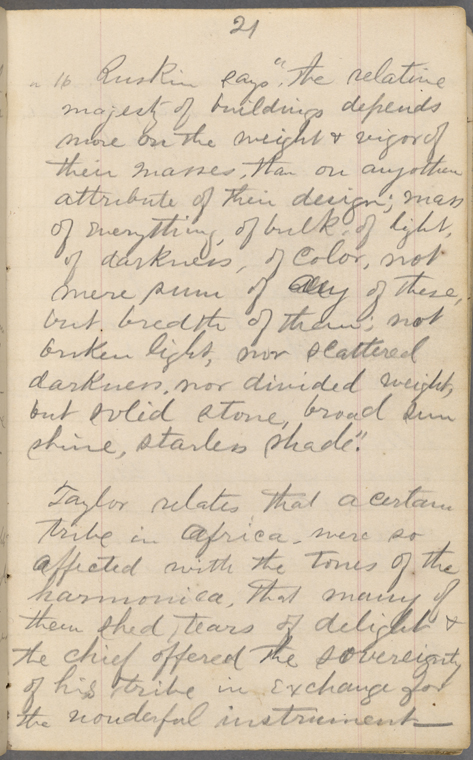 21
" 16 Ruskin says "the relative
majesty of buildings depends
more on the weight & vigor of
their masses, than on any other
attribute of their design; mass
of everything, of bulk, of light,
of darkness, of color, not
mere sum of any of these,
but bredth of them; not
broken light, nor scattered
darkness, nor divided weight,
but solid stone, broad sun
shine, starless shade".
Taylor relates that a certain
tribe in Africa were so
affected with the tones of the
harmonica, that many of
them shed tears of delight &
the chief offered the sovereignty
of his tribe in exchange for
the wonderful instrument